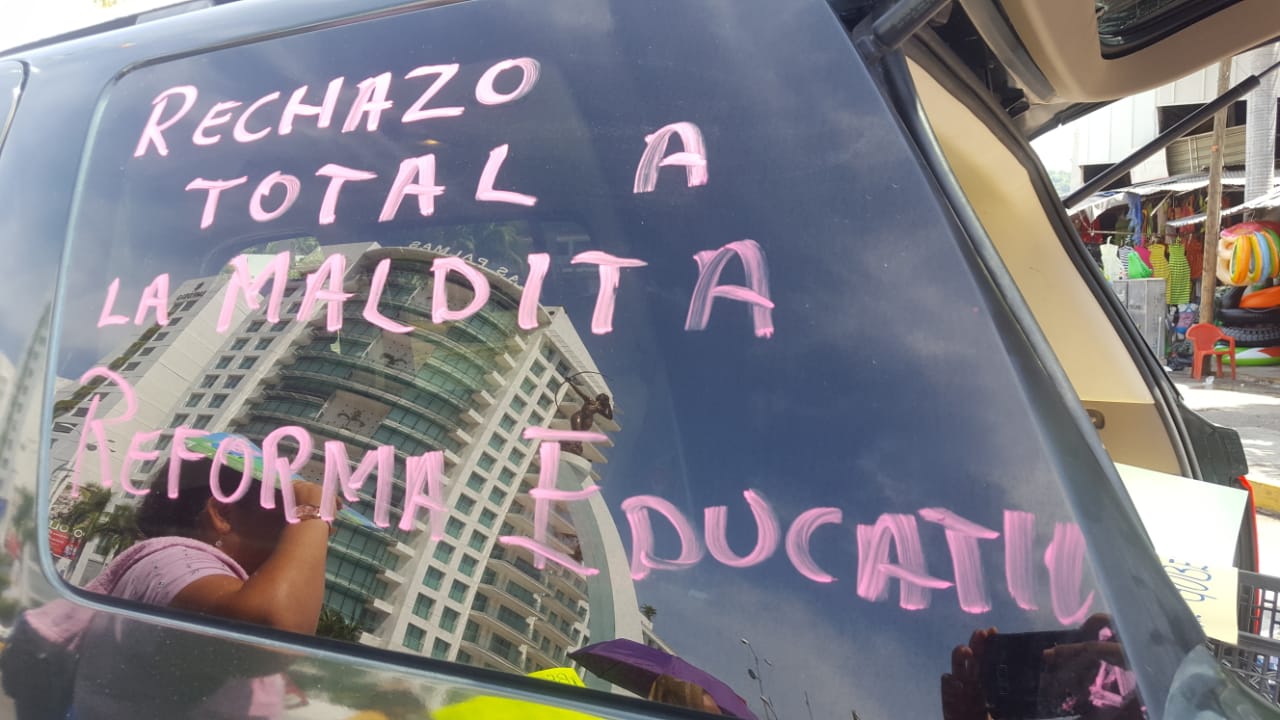 RECHAZO
TOTAL A
LA MALDITA
REFORMA EDUCATIV
LAS PALMAS